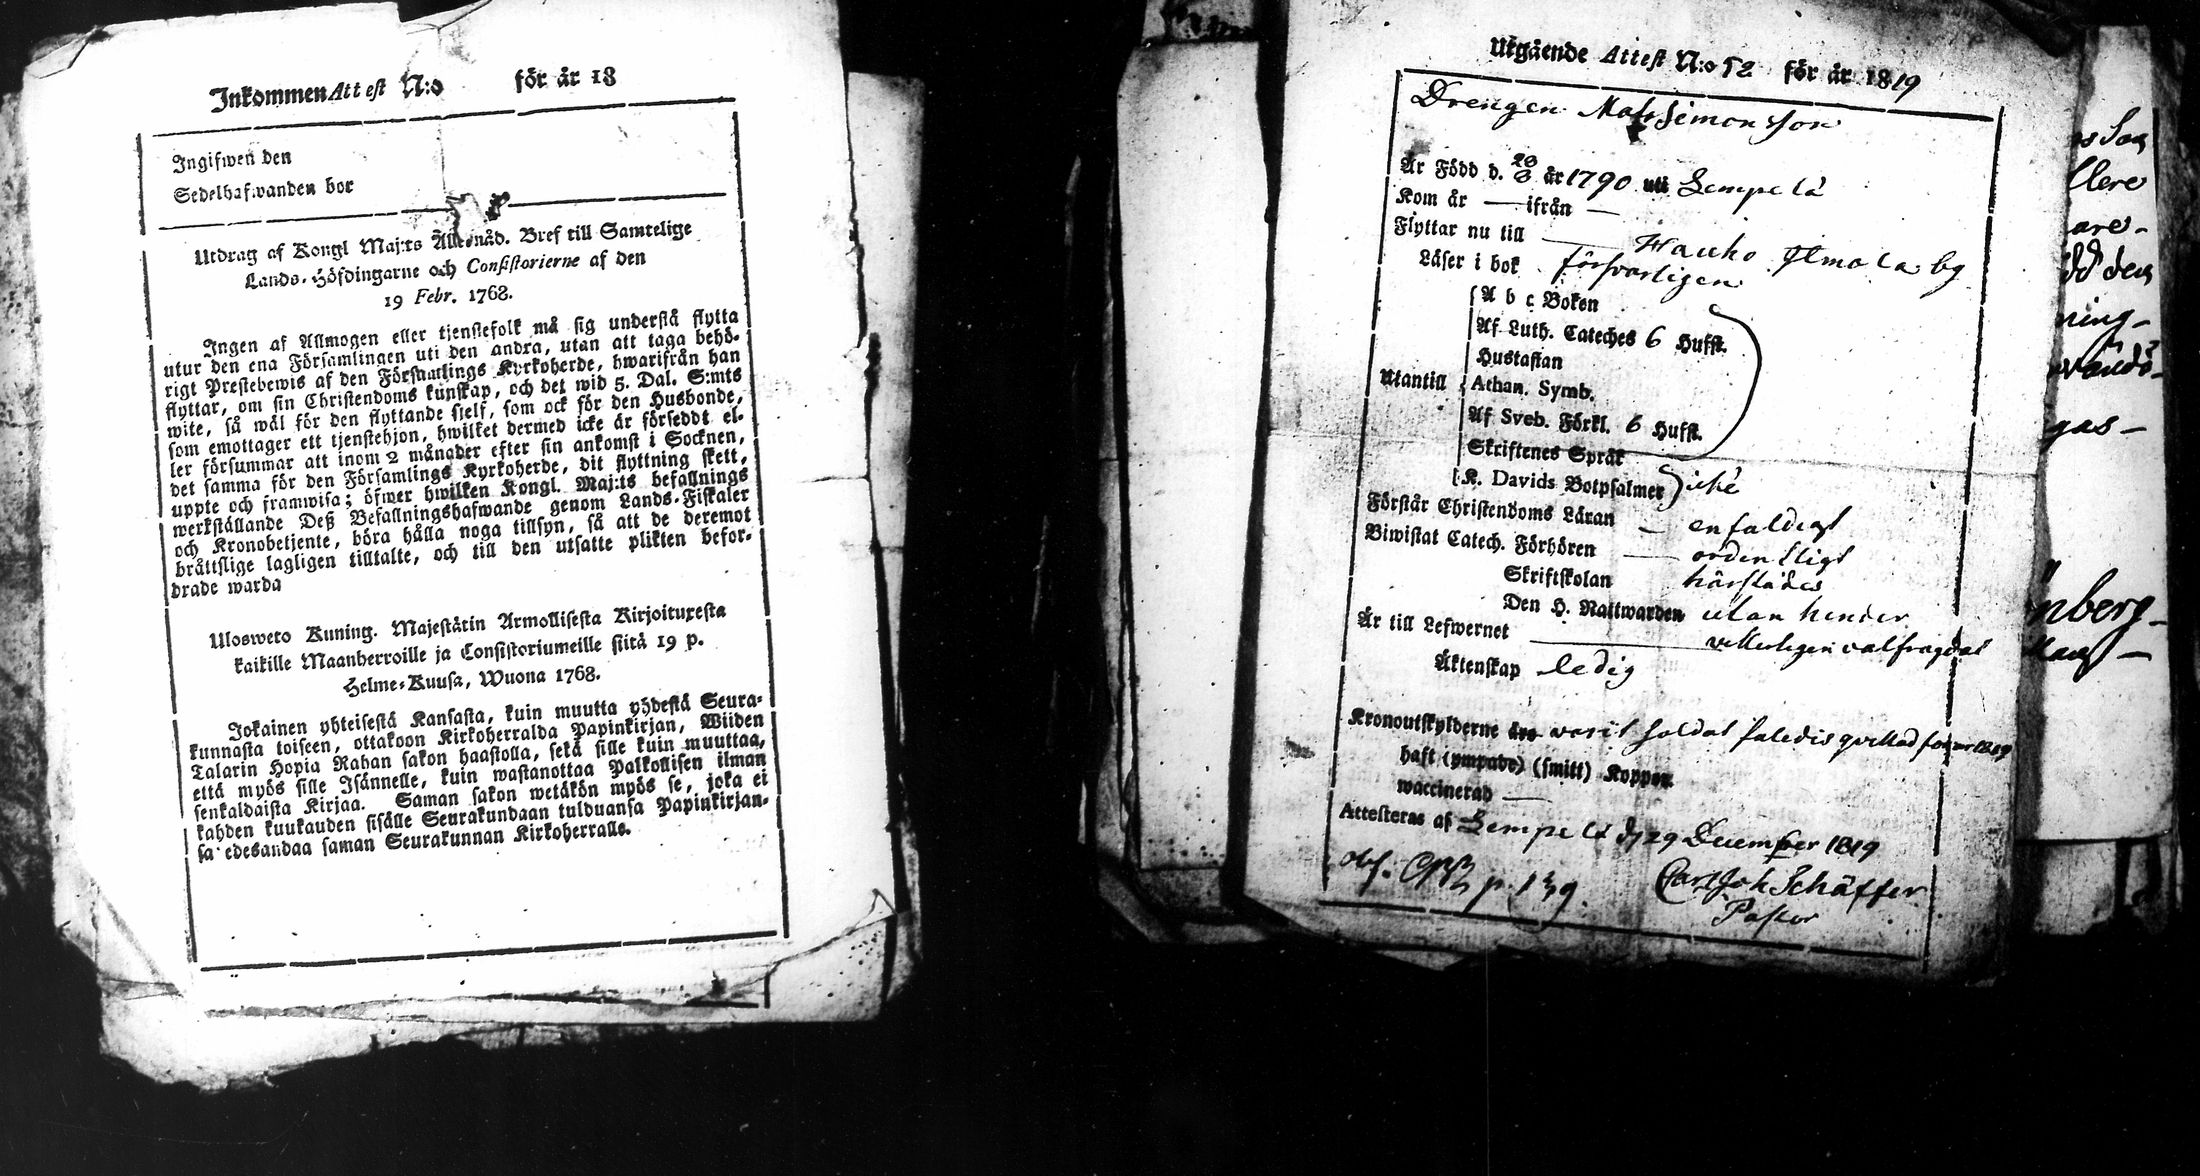 Inkommen Attest N:o för år 18
Ingifwen den
Sedelhafwanden bor
Utdrag af Kongl Maj:ts Allernåd. Bref till Samtelige
Lands-Höfdingarne och Consistorierne af den
19 Febr. 1768.
Ingen af Allmogen eller tjenstefolk må sig understå flytta
utur den ena Församlingen uti den andra, utan att taga behö-
rigt Prestebewis af den Församlings Kyrkoherde, hwarifrån han
flyttar, om sin Christendoms kunskap, och det wid 5. Dal. S:mts
wite, så wäl för den flyttande sjelf, som ock för den Husbonde,
som emottager ett tjenstehjon, hwilket dermed icke är försedt el-
ler försummar att inom 2 månader efter sin ankomst i Socknen,
det samma för den Församlings Kyrkoherde, dit flyttning skett,
uppte och framwisa; öfwer hwilken Kongl. Maj:ts befallnings
werkställande Deß Befallningshafwande genom Lands-Fiskaler
och Kronobetjente, böra hålla noga tillsyn, så att de deremot
bråttslige lagligen tilltalte, och till den utsatte plikten befor-
drade warda
Ulosweto Kuning. Majestätin Armollisesta Kirjoituxesta
kaikille Maanherroille ja Consistoriumeille siitä 19 p.
Helme-Kuusa, Wuona 1768.
Jokainen yhteisestä Kansasta, kuin muutta yhdestä Seura-
kunnasta toiseen, ottakoon Kirkoherralda Papinkirjan, Wiiden
Talarin Hopia Rahan sakon haastolla, sekä sille kuin muuttaa,
että myös sille Isännelle, kuin wastanottaa Palkollisen ilman
senkaldaista Kirjaa. Saman sakon wetäkön myös se, joka ei
kahden kuukauden sisälle Seurakundaan tulduansa Papinkirjan-
sa edesandaa saman Seurakunnan Kirkoherralle.
Utgående Attest N:o 52 för år 1819
Drengen Mats Simonsson
Är Född d. 20/8 år 1790 uti Lempelä
Kom år — ifrån —
Flyttar nu till — Hauho Ilmola by
Läser i bok försvarligen
A b c Boken
Af Luth. Cateches 6 Hufst.
Hustaflan
Utantill Athan. Symb.
Af Sveb. Förkl. 6 Hufst.
Skriftenes Språk
K. Davids Botpsalmer icke
Förstår Christendoms Läran — enfaldigt
Biwistat Catech. Förhören — ordentligt
Skriftskolan härstädes
Den H. Nattwarden utan hinder
Är till Lefwernet — välfrägdat
Äktenskap ledig
Kronoutskylderne äro varit soldat 1819
haft (ympade) (smitt) Koppor.
waccinerad —
Attesteras af Lempelä d 29 December 1819
p. 139. Carl Joh Schäffer
Pastor